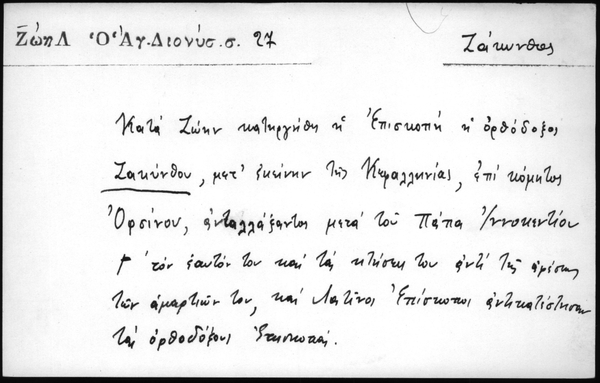 Ζώη Λ Ὁ Ἅγ. Διονύσ. σ. 27
Ζάκυνθος
Κατά Ζώην κατηργήθη ἡ Ἐπισκοπή ἡ ὀρθόδοξος
Ζακύνθου, μετ' ἐκείνην τῆς Κεφαλληνίας, ἐπί κόμητος
Ὀρσίνου, ἀνταλλάξαντος μετά τοῦ Πάπα Ἰννοκεντίου
Γ' τόν ἑαυτόν του καί τάς κτήσεις του ἀντί τῆς ἀφέσεως
τῶν ἁμαρτιῶν του, καί Λατῖνος Ἐπίσκοπος ἀντικατέστησεν
τάς ὀρθοδόξους Ἐπισκοπάς.